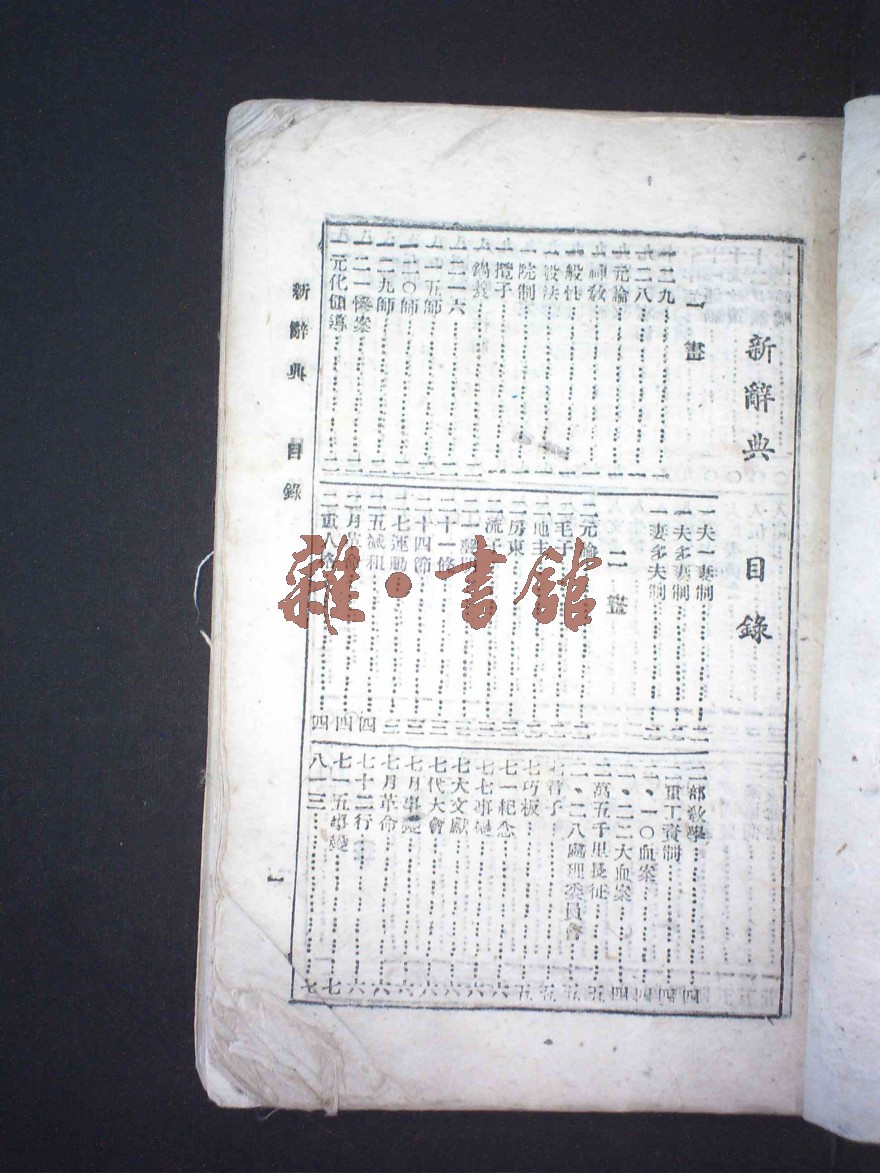 新辭典 目錄
一畫
一二九……一
一二八……一
一元論……一
一神教……一
一般性……一
一般法……一
一院制……一
一攬子……一
一鍋煮……二
一二一六……二
一一五師……二
一二〇師……二
一二九師……二
一二一慘案……二
一元化領導……二
一夫一妻制……二
一夫多妻制……二
一妻多夫制……二
二畫
二元論……二
二毛子……二
二地主……二
二房東……三
二流子……三
二十一條……三
二十四節……三
二七運動……三
二五減租……四
二月革命……四
二重人格……四
二部教學……四
二重工資制……四
二、一〇血案……四
二、二二大血案……四
二萬五千里長征……五
二、二八處理委員會……五
七君子……五
七巧板……五
七一紀念……六
七七事變……六
七大文獻……六
七代大會……六
七月事變……六
七月革命……六
七十二行……六
七一五事變……七
八一三……七
新辭典 目錄
一
雜·書館